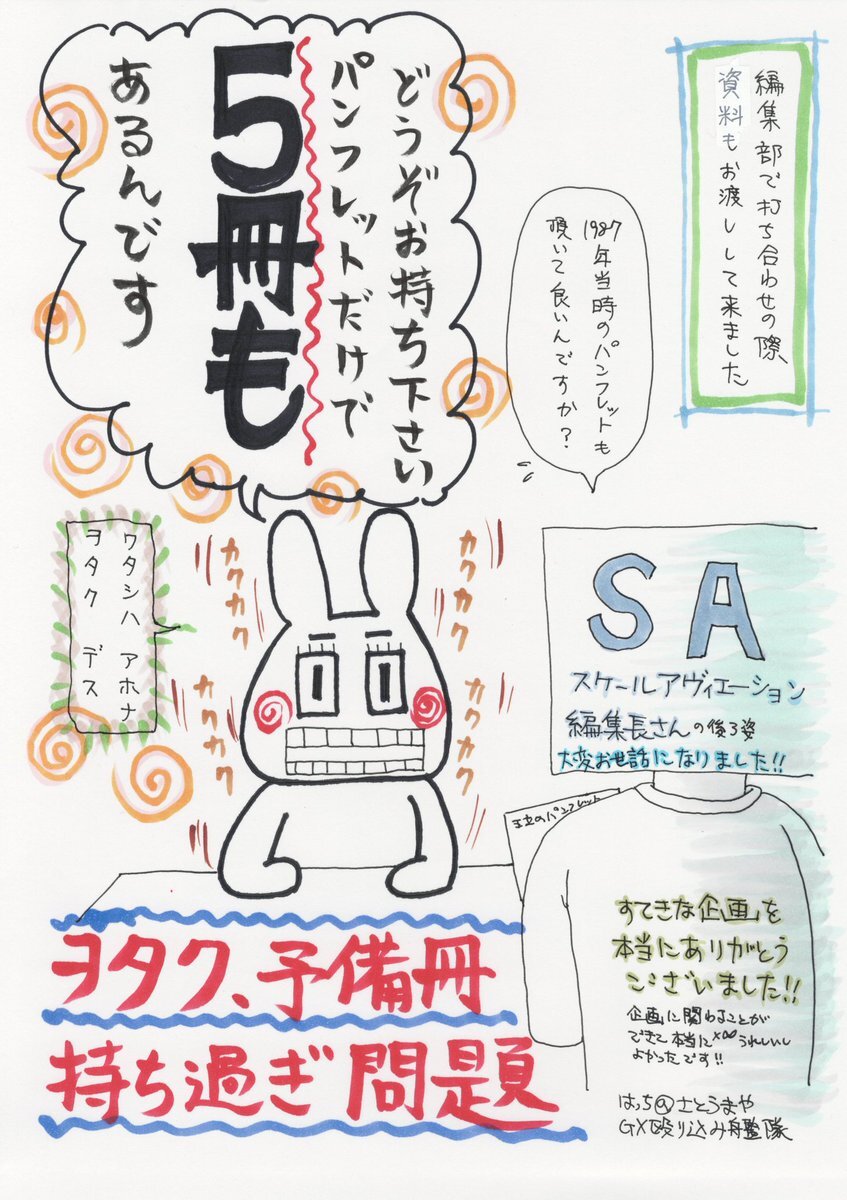 編集部で打ち合わせの際、
資料もお渡しして来ました
1987年当時のパンフレットも
頂いて良いんですか?
どうぞお持ち下さい
パンフレットだけで
5冊も
あるんです
カクカク
カクカク
カクカク
カクカク
ワタシハ アホナ
ヲタク デス
SA
スケールアヴィエーション
編集長さんの後ろ姿
大変お世話になりました!!
王立のパンフレット
すてきな企画を
本当にありがとう
ございました!!
企画に関わることが
できて本当に×∞うれしいし
よかったです!!
はっち@さとうまや
GX殴り込み艦隊
ヲタク、予備冊
持ち過ぎ問題